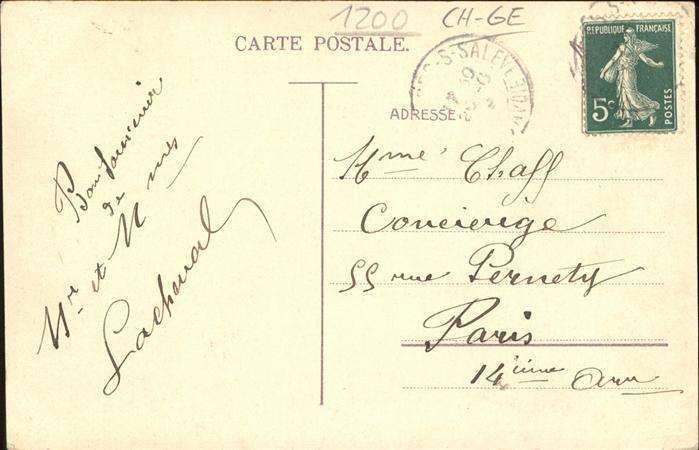 1200 CH-GE
CARTE POSTALE.
REPUBLIQUE FRANÇAISE
5c
POSTES
ADRESSE
Bon souvenir
de
Mr et Mmes
Lachaval
Mme Chaff
Concierige
55 rue Pernety
Paris
14ième Arr